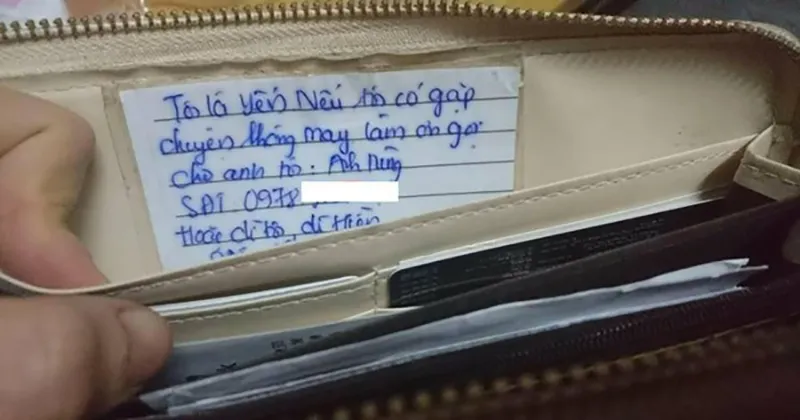 Tôi là Yến Nếu tôi có gặp
chuyện không may làm ơn gọi
cho anh tôi: Anh Hùng
SĐT 0978
Hoặc dì tôi, dì Hiền